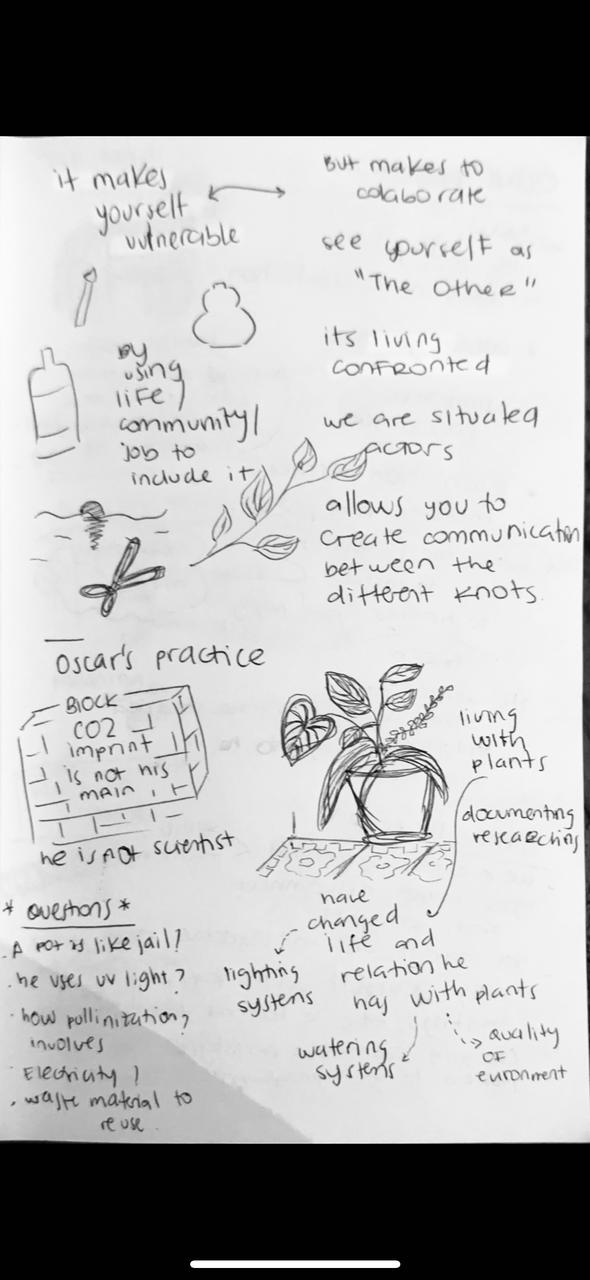 it makes
yourself
vulnerable
But makes to
colaborate
see yourself as
"The Other"
its living
confronted
we are situated
actors
allows you to
create communication
between the
different knots.
by
using
life/
community/
job to
include it
Oscar's practice
BLOCK
CO2
imprint
is not his
main
he is not scientist
living
with
plants
documenting
researching
have
changed
life and
relation he
has with plants
lighting
systems
watering
systems
quality
of
euronment
* Questions *
. A pot is like jail?
. he uses uv light?
. how pullinization?
involves
Electricity)
. waste material to
reuse.